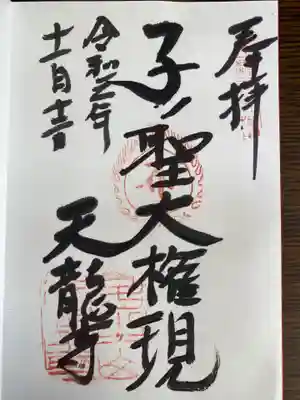 奉拝
子ノ聖大権現
天龍寺
令和元年
十一月十一日